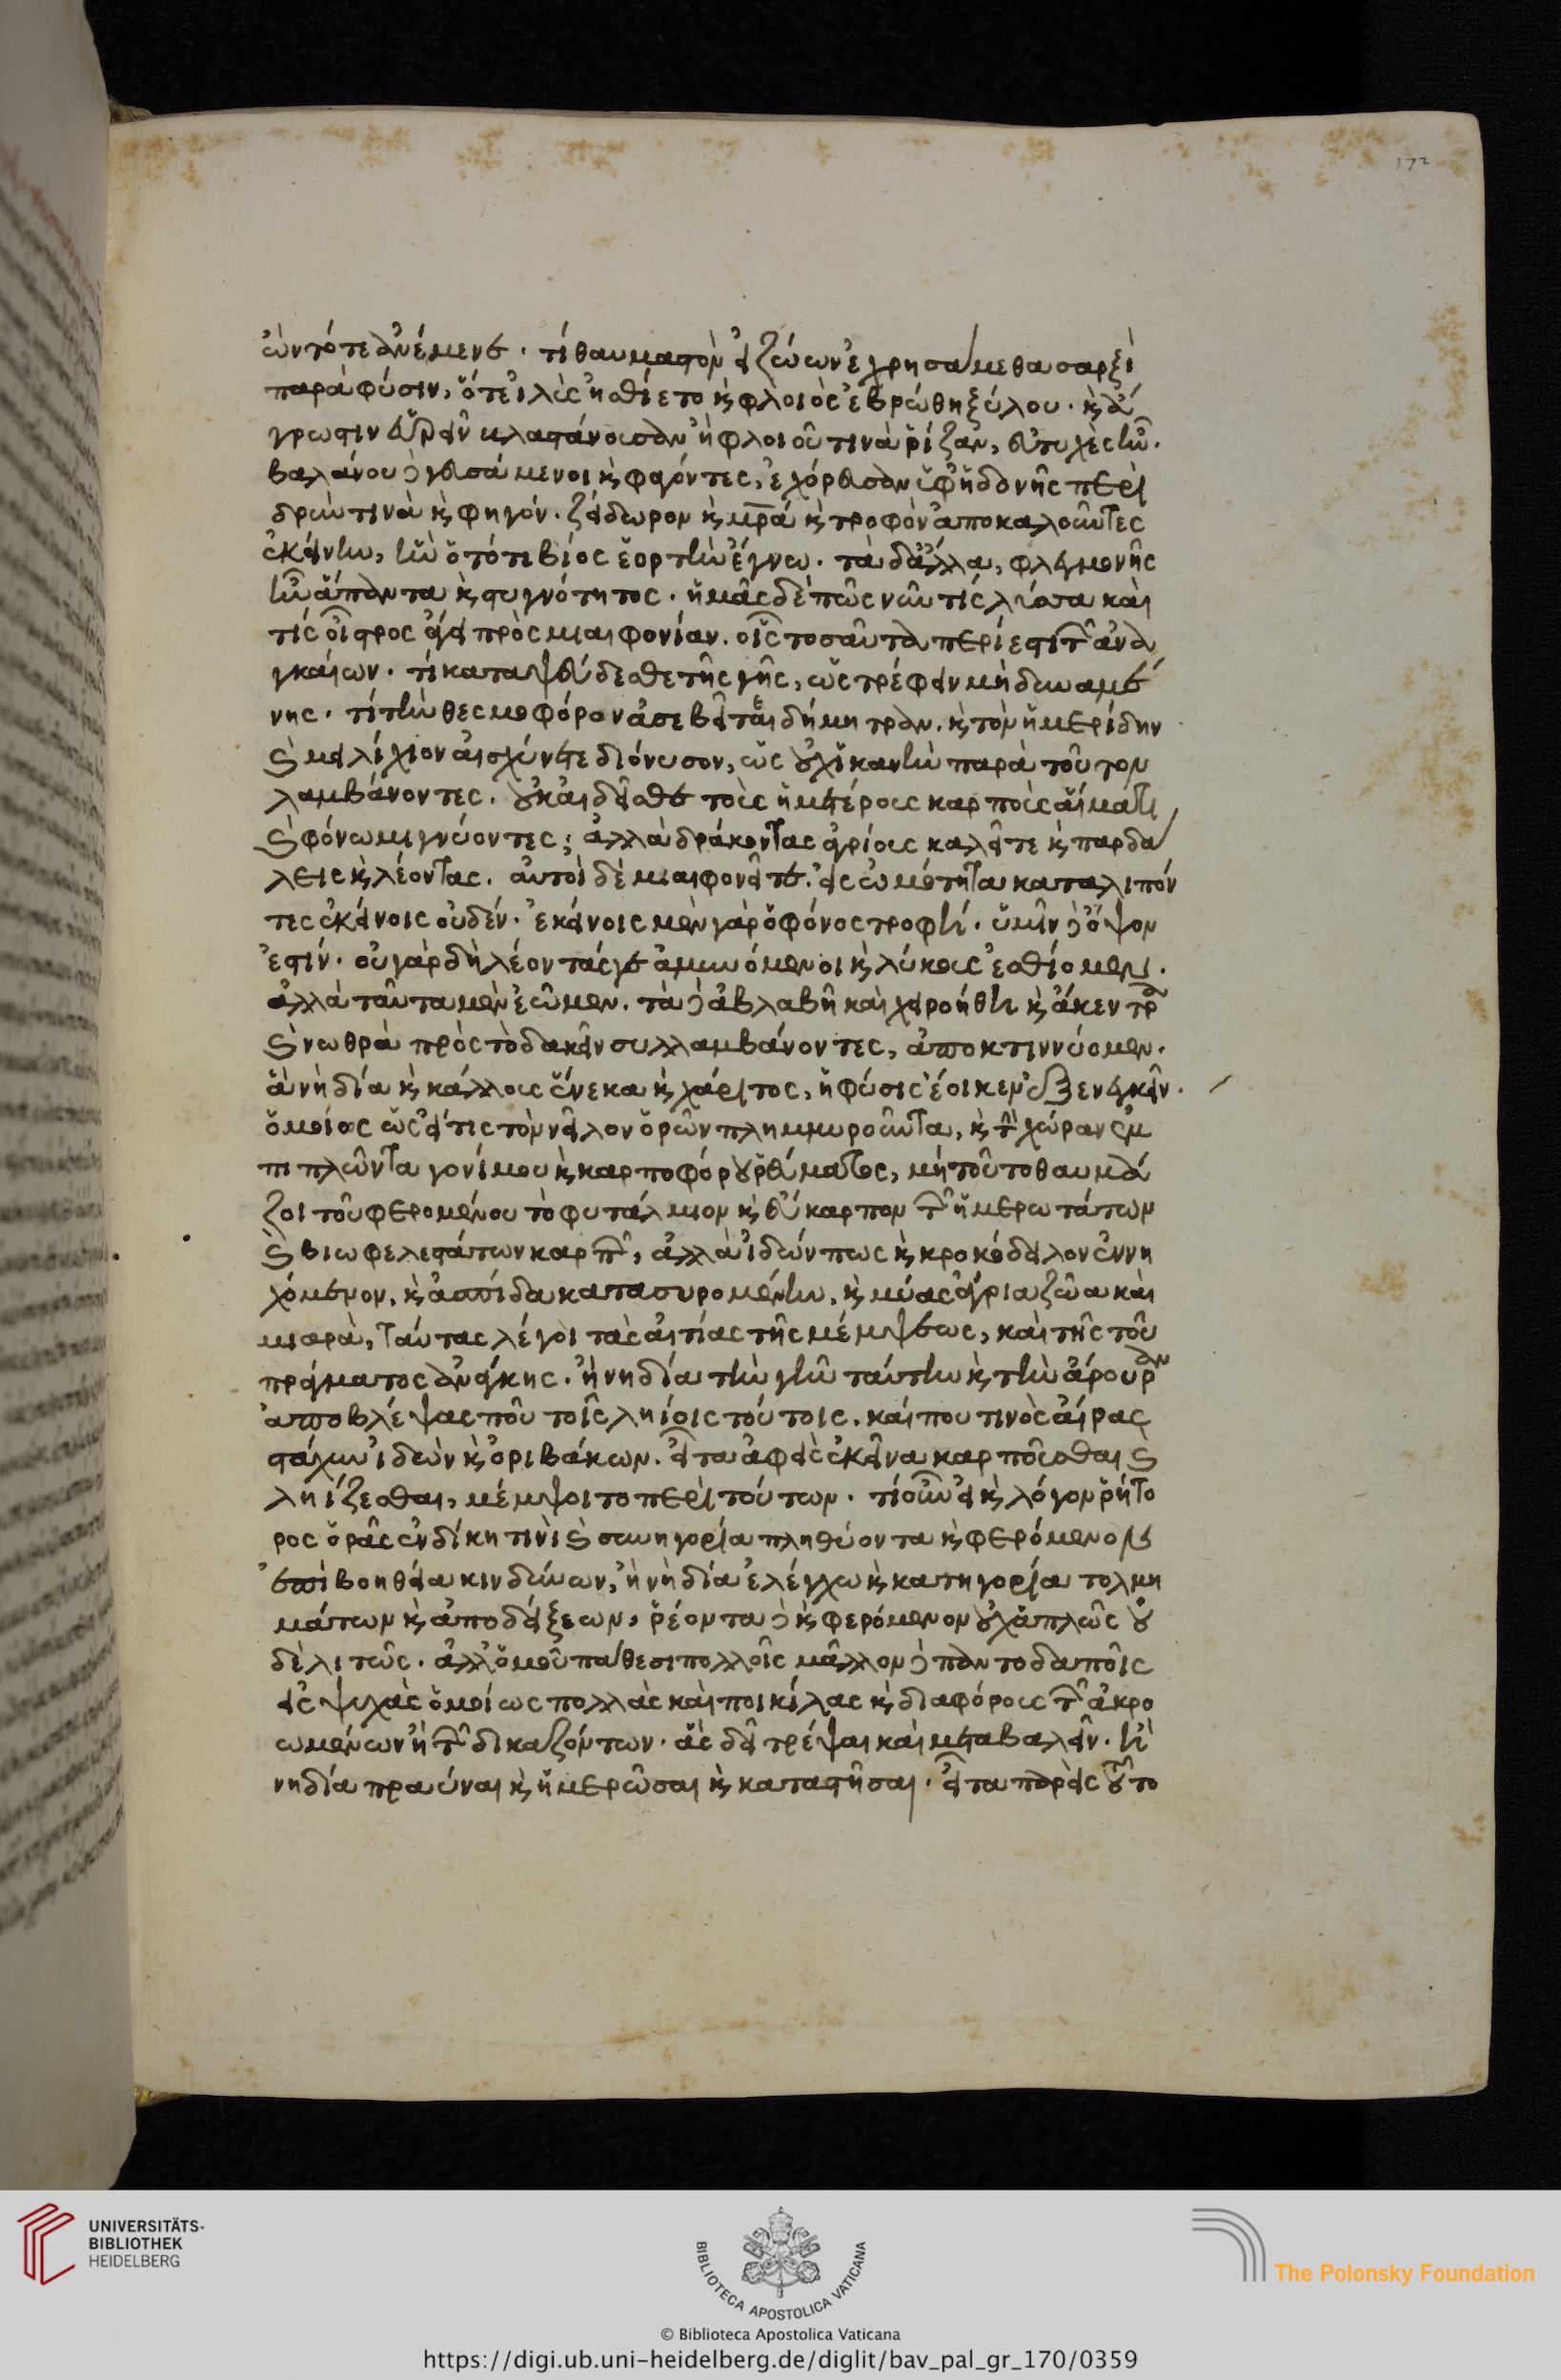 172
ὧν τότε ἀνέμενε. τί θαυμαστὸν εἰ ζώων ἐχρησάμεθα σαρξὶ
παρὰ φύσιν, ὅτε ἰλὺς ἠσθίετο κ φλοιὸς ἐβρώθη ξύλου. κ ἄ
γρωστιν εὑρεῖν βλαστάνουσαν ἢ φλοιοῦ τινὰ ῥίζαν, εὐτυχὲς ἦν.
βαλάνου δὲ γευσάμενοι κ φαγόντες, ἐχόρευσαν ὑφ' ἡδονῆς περὶ
δρῦν τινὰ κ φηγόν. ζείδωρον κ μρα κ τροφὸν ἀποκαλοῦντες
ἐκείνην, ἣν ὁ τότε βίος ἑορτὴν ἔγνω. τὰ δ' ἄλλα, φλεγμονῆς
ἦν ἅπαντα κ στυγνότητος. ἡμᾶς δὲ πῶς νῦν τίς λύσσα καὶ
τίς οἶστρος ἄγει πρὸς μιαιφονίαν. οἷς τοσαῦτα περίεστι τῶν ἀνα
γκαίων. τί καταψεύδεσθε τῆς γῆς, ὡς τρέφειν μὴ δυναμέ
νης. τί τὴν θεσμοφόρον ἀσεβεῖτε δήμητραν. κ τὸν ἡμερίδην
κ μειλίχιον αἰσχύνετε διόνυσον, ὡς οὐχ ἱκανὴν παρὰ τούτου
λαμβάνοντες. οὐκ αἰδεῖσθε τοὺς ἡμέρους καρποὺς αἵματι
κ φόνω μιγνύοντες; ἀλλὰ δράκοντας ἀγρίους καλεῖτε κ παρδά
λεις κ λέοντας. αὐτοὶ δὲ μιαιφονεῖτε. εἰς ὠμότητα καταλιπόν
τες ἐκείνοις οὐδέν. ἐκείνοις μὲν γὰρ ὁ φόνος τροφή. ὑμῖν δὲ ὄψον
ἐστίν. οὐ γὰρ δὴ λέοντάς γε ἀμυνόμενοι κ λύκους ἐσθίομεν.
ἀλλὰ ταῦτα μὲν ἐῶμεν. τὰ δὲ ἀβλαβῆ καὶ χειροήθη κ ἄκεντρα
κ νωθρὰ πρὸς τὸ δακεῖν συλλαμβάνοντες, ἀποκτιννύομεν.
ἃ νὴ δία κ κάλλους ἕνεκα κ χάριτος, ἡ φύσις ἔοικεν ἐξενεγκεῖν.
ὅμοιος ὡς εἴ τις τὸν νεῖλον ὁρῶν πλημμυροῦντα, κ τὴν χώραν ἐμ
πιπλῶντα γονίμου κ καρποφόρου ῥεύματος, μὴ τοῦτο θαυμά
ζοι τοῦ φερομένου τὸ φυτάλμιον κ εὔκαρπον τῶν ἡμερωτάτων
κ βιωφελεστάτων καρπῶν, ἀλλὰ ἰδών πως κ κροκόδειλον ἐννη
χόμενον, κ ἀσπίδα κατασυρομένην, κ μύας ἄγρια ζῶα καὶ
μιαρὰ, ταύτας λέγοι τὰς αἰτίας τῆς μέμψεως, καὶ τῆς τοῦ
πράγματος ἀνάγκης. ἢ νὴ δία τὴν γῆν ταύτην κ τὴν ἄρουραν
ἀποβλέψας που τοῖς ληίοις τούτοις. καί που τινὸς αἴρας
στάχυν ἰδὼν κ ὀροβάκων. εἶτα ἀφεὶς ἐκεῖνα καρποῦσθαι κ
ληίζεσθαι, μέμψοιτο περὶ τούτων. τί οὖν εἰ κ λόγον ῥήτο
ρος ὁρᾶς ἐν δίκη τινὶ κ συνηγορία πληθύοντα κ φερόμενον
ἐπὶ βοηθεία κινδύνων, ἢ νὴ δία ἐλέγχω κ κατηγορία τολμη
μάτων κ ἀποδείξεων, ῥέοντα δὲ κ φερόμενον οὐχ ἁπλῶς οὐ
δὲ λιτῶς. ἀλλ' ὁμοῦ πάθεσι πολλοῖς μᾶλλον δὲ παντοδαποῖς
εἰς ψυχὰς ὁμοίως πολλὰς καὶ ποικίλας κ διαφόρους τῶν ἀκρο
ωμένων ἢ τῶν δικαζόντων. ἃς δεῖ τρέψαι καὶ μεταβαλεῖν. ἢ
νὴ δία πραΰναι κ ἡμερῶσαι κ καταστῆσαι. εἶτα παρεὶς τοῦτο
UNIVERSITÄTS-
BIBLIOTHEK
HEIDELBERG
BIBLIOTECA APOSTOLICA VATICANA
The Polonsky Foundation
© Biblioteca Apostolica Vaticana
https://digi.ub.uni-heidelberg.de/diglit/bav_pal_gr_170/0359